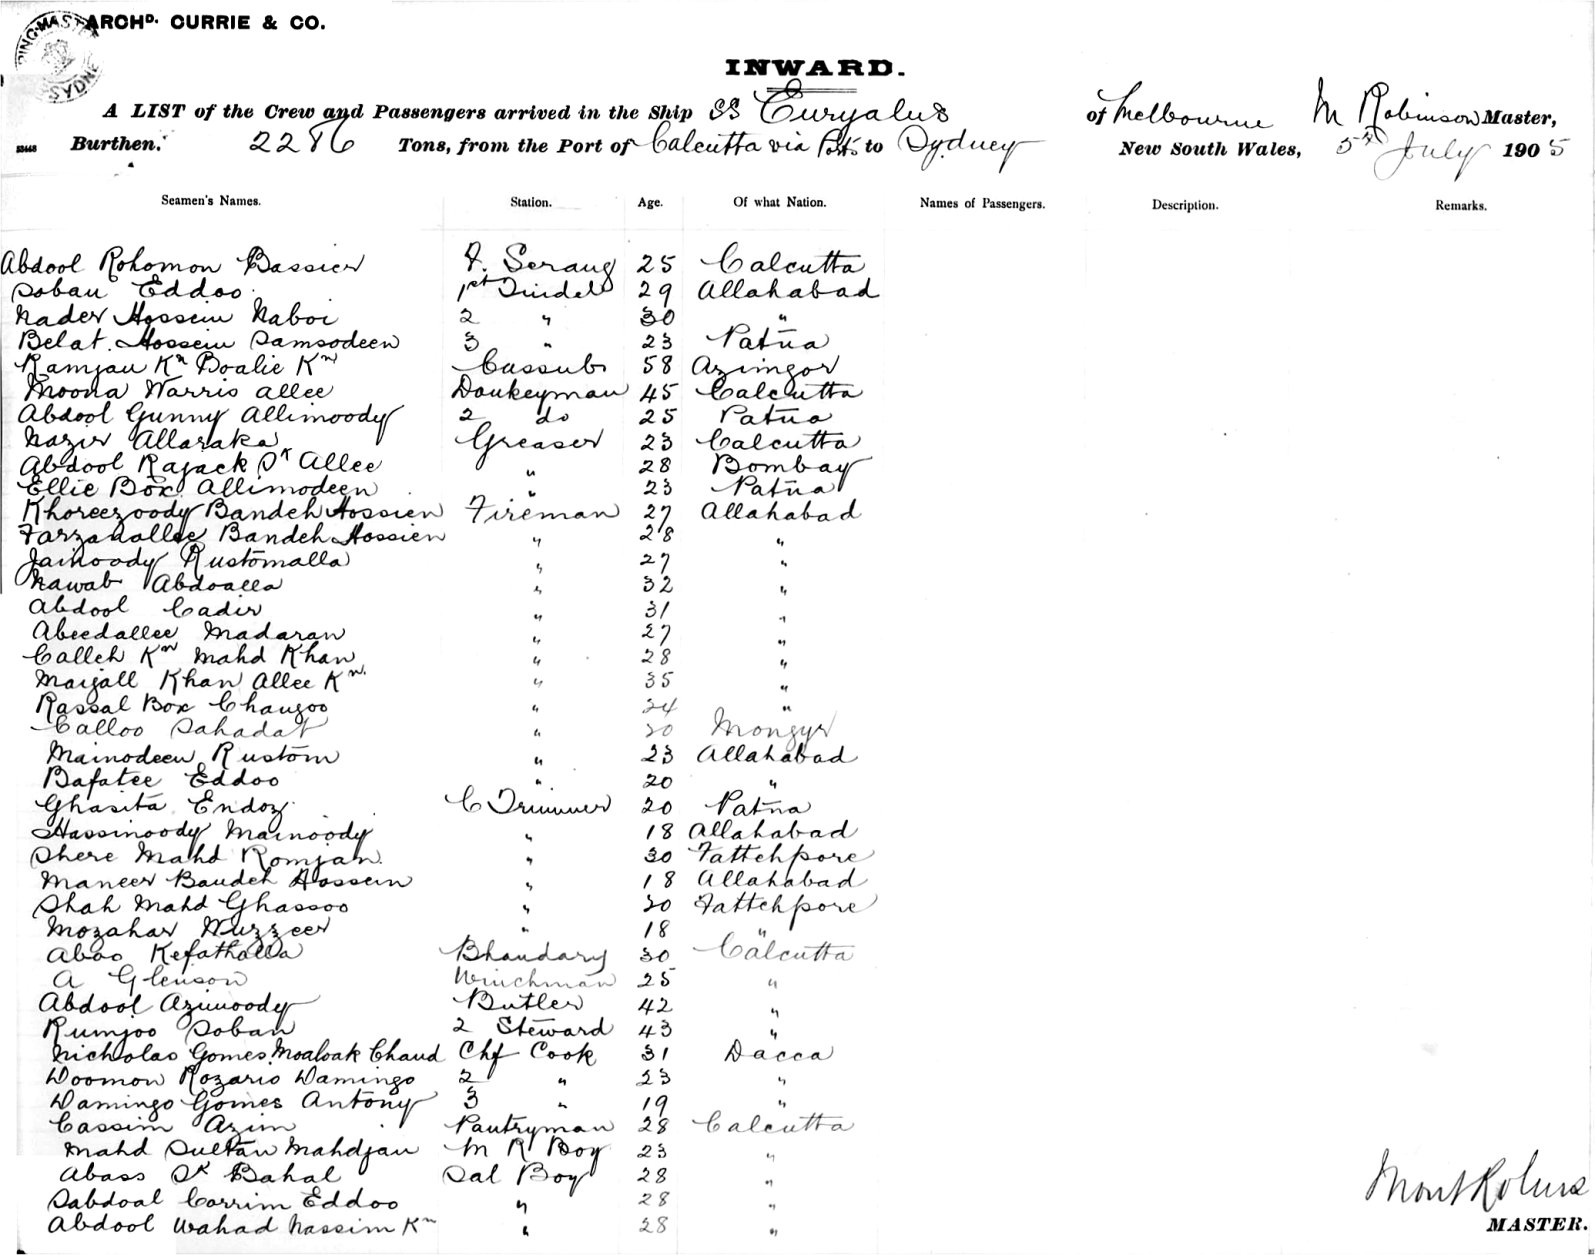 ARCHD. CURRIE & CO.
INWARD.
A LIST of the Crew and Passengers arrived in the Ship SS Euryalus of Melbourne M Robinson Master,
Burthen: 2286 Tons, from the Port of Calcutta via Pts to Sydney New South Wales, 5th July 1905
Seamen's Names. Station. Age. Of what Nation. Names of Passengers. Description. Remarks.
Abdool Rohomon Bassier F. Serang 25 Calcutta
Soban Eddoo 1st Tindel 29 Allahabad
Nader Hossein Naboi 2 " 30 "
Belat Hossein Samsodeen 3 " 23 Patna
Ramjan Kn Boalie Kn Cassub 58 Azimgor
Moona Warris Allee Donkeyman 45 Calcutta
Abdool Gunny Allimoody 2 do 25 Patna
Nazir Allaraka Greaser 23 Calcutta
Abdool Rajack Sk Allee " 28 Bombay
Ellie Box Allimodeen " 23 Patna
Khoreezoody Bandeh Hossien Fireman 27 Allahabad
Farzanallee Bandeh Hossien " 28 "
Jainoody Rustomalla " 27 "
Nawab Abdoalla " 32 "
Abdool Cadir " 31 "
Abeedallee Madaran " 27 "
Calleh Kn Mahd Khan " 28 "
Maijall Khan Allee Kn " 35 "
Rassal Box Changoo " 24 "
Calloo Sahadat " 20 Mongyr
Mainodeen Rustom " 23 Allahabad
Bafatee Eddoo " 20 "
Ghasita Endoz C Trimmer 20 Patna
Hassinoody Mainoody " 18 Allahabad
Shere Mahd Romjan " 30 Fattehpore
Maneer Bandeh Hossein " 18 Allahabad
Shah Mahd Ghassoo " 20 Fattehpore
Mozahar Wuzzeer " 18 "
Aboo Kefathalla Bhandary 30 Calcutta
A Glenson Winchman 25 "
Abdool Azimoody Butler 42 "
Rumjoo Soban 2 Steward 43 "
Nicholas Gomes Moaloak Chand Chf Cook 31 Dacca
Doomon Rozario Damingo 2 " 23 "
Damingo Gomes Antony 3 " 19 "
Cassim Azim Pantryman 28 Calcutta
Mahd Sultan Mahdjan M R Boy 23 "
Abass Sk Bahal Sal Boy 28 "
Sabdoal Corrim Eddoo " 28 "
Abdool Wahad Nassim Kn " 28 "
MASTER.